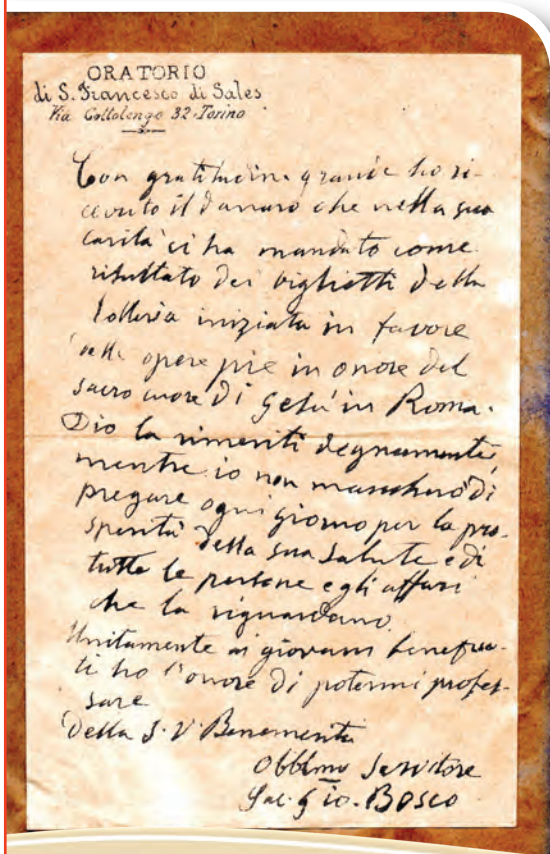 ORATORIO
di S. Francesco di Sales
Via Cottolengo 32-Torino
Con gratitudine grande ho ri-
cevuto il danaro che nella sua
carità ci ha mandato come
risultato dei viglietti della
lotteria iniziata in favore
delle opere pie in onore del
sacro cuore di Gesù in Roma.
Dio la rimeriti degnamente,
mentre io non mancherò di
pregare ogni giorno per la pro-
sperità della sua salute e di
tutte le persone e gli affari
che la riguardano.
Unitamente ai giovani benefica-
ti ho l'onore di potermi profes-
sare
Della S. V. Benemerita
Obblmo Servitore
Sac. Gio. Bosco